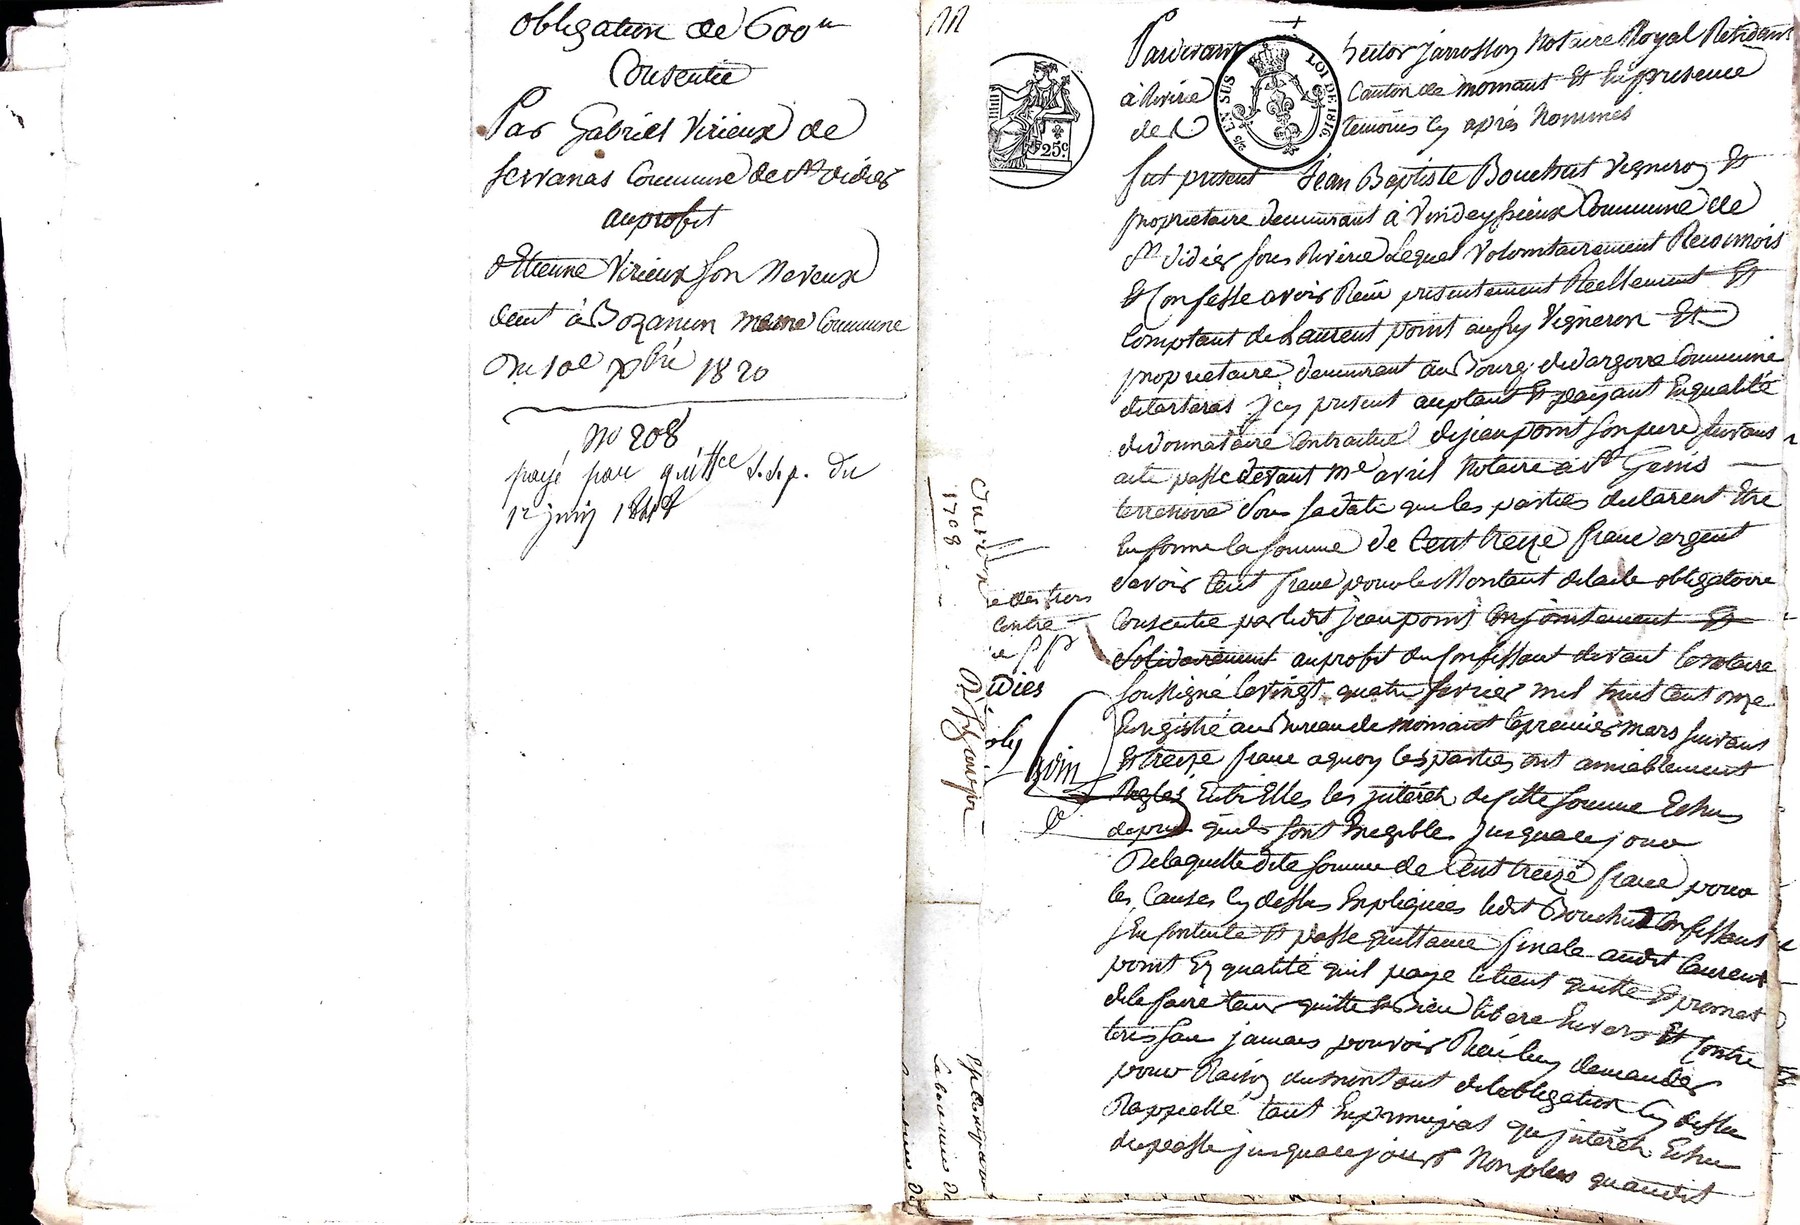 obligation de 600#
Consentie
Par Gabriel Virieux de
Servanas Commune de St didier
au profit
d'Etienne Virieux son Neveux
demt à Bozanun meme Commune
Du 10e Xbre 1820
No 208
payé par quittce s.s.p. du
12 juin
Pardevant hector jarrosson Notaire Royal Residant
à Rivirie Canton de mornant Et En presence
des temoins Cy après Nommés
EN SUS
LOI DE 1816.
25c.
fut present Jean Baptiste Bouchut Vigneron Et
proprietaire demeurant à Vindeyssieux Commune de
St Didier sous Riviriè Lequel Volontairement Reconnois
Et Confesse avoir Recu presentement Reellement Et
Comptant de Laurent point aussy Vigneron Et
proprietaire demeurant au Bourg de dargoire Commune
de tartaras Icy present acceptant Et payant En qualité
de donnataire Contractuel de jean point son pere suivant
acte passé devant me avril Notaire a St Genis
terrenoire Sous sa date que les parties declarent Etre
En forme la somme de Cent treize franc argent
Savoir Cent franc pour le Montant de lacte obligatoire
Consentie par ledit jean point Conjointement Et
Solidairement au profit du Confessant devant le notaire
soussigné le vingt quatre fevrier mil huit cent onze
Enregistré au Bureau de mornant le premier mars suivant
Et treize franc a quoy les parties ont amiablement
Reglés Entr'Elles les intérêts de cette somme Echus
depuis quils sont Exegibles jusqua ce jour
De laquelle dite somme de Cent treize franc pour
les Causes Cy dessus Expliquées ledit Bouchut Confessant
sEn contente Et passe quittance finale audit Laurent
point En qualité quil paye le tient quitte Et promet
de le faire tenir quitte Et Bien libere Envers Et Contre
tous sans jamais pouvoir Rien luy demander
pour Raison du montant de lobligation Cy dessus
Rappellé tant En principal qu'intérêts Echus
du passé jusqua ce jour Non plus quaudit
1708.
e des tiers
Contre
idies